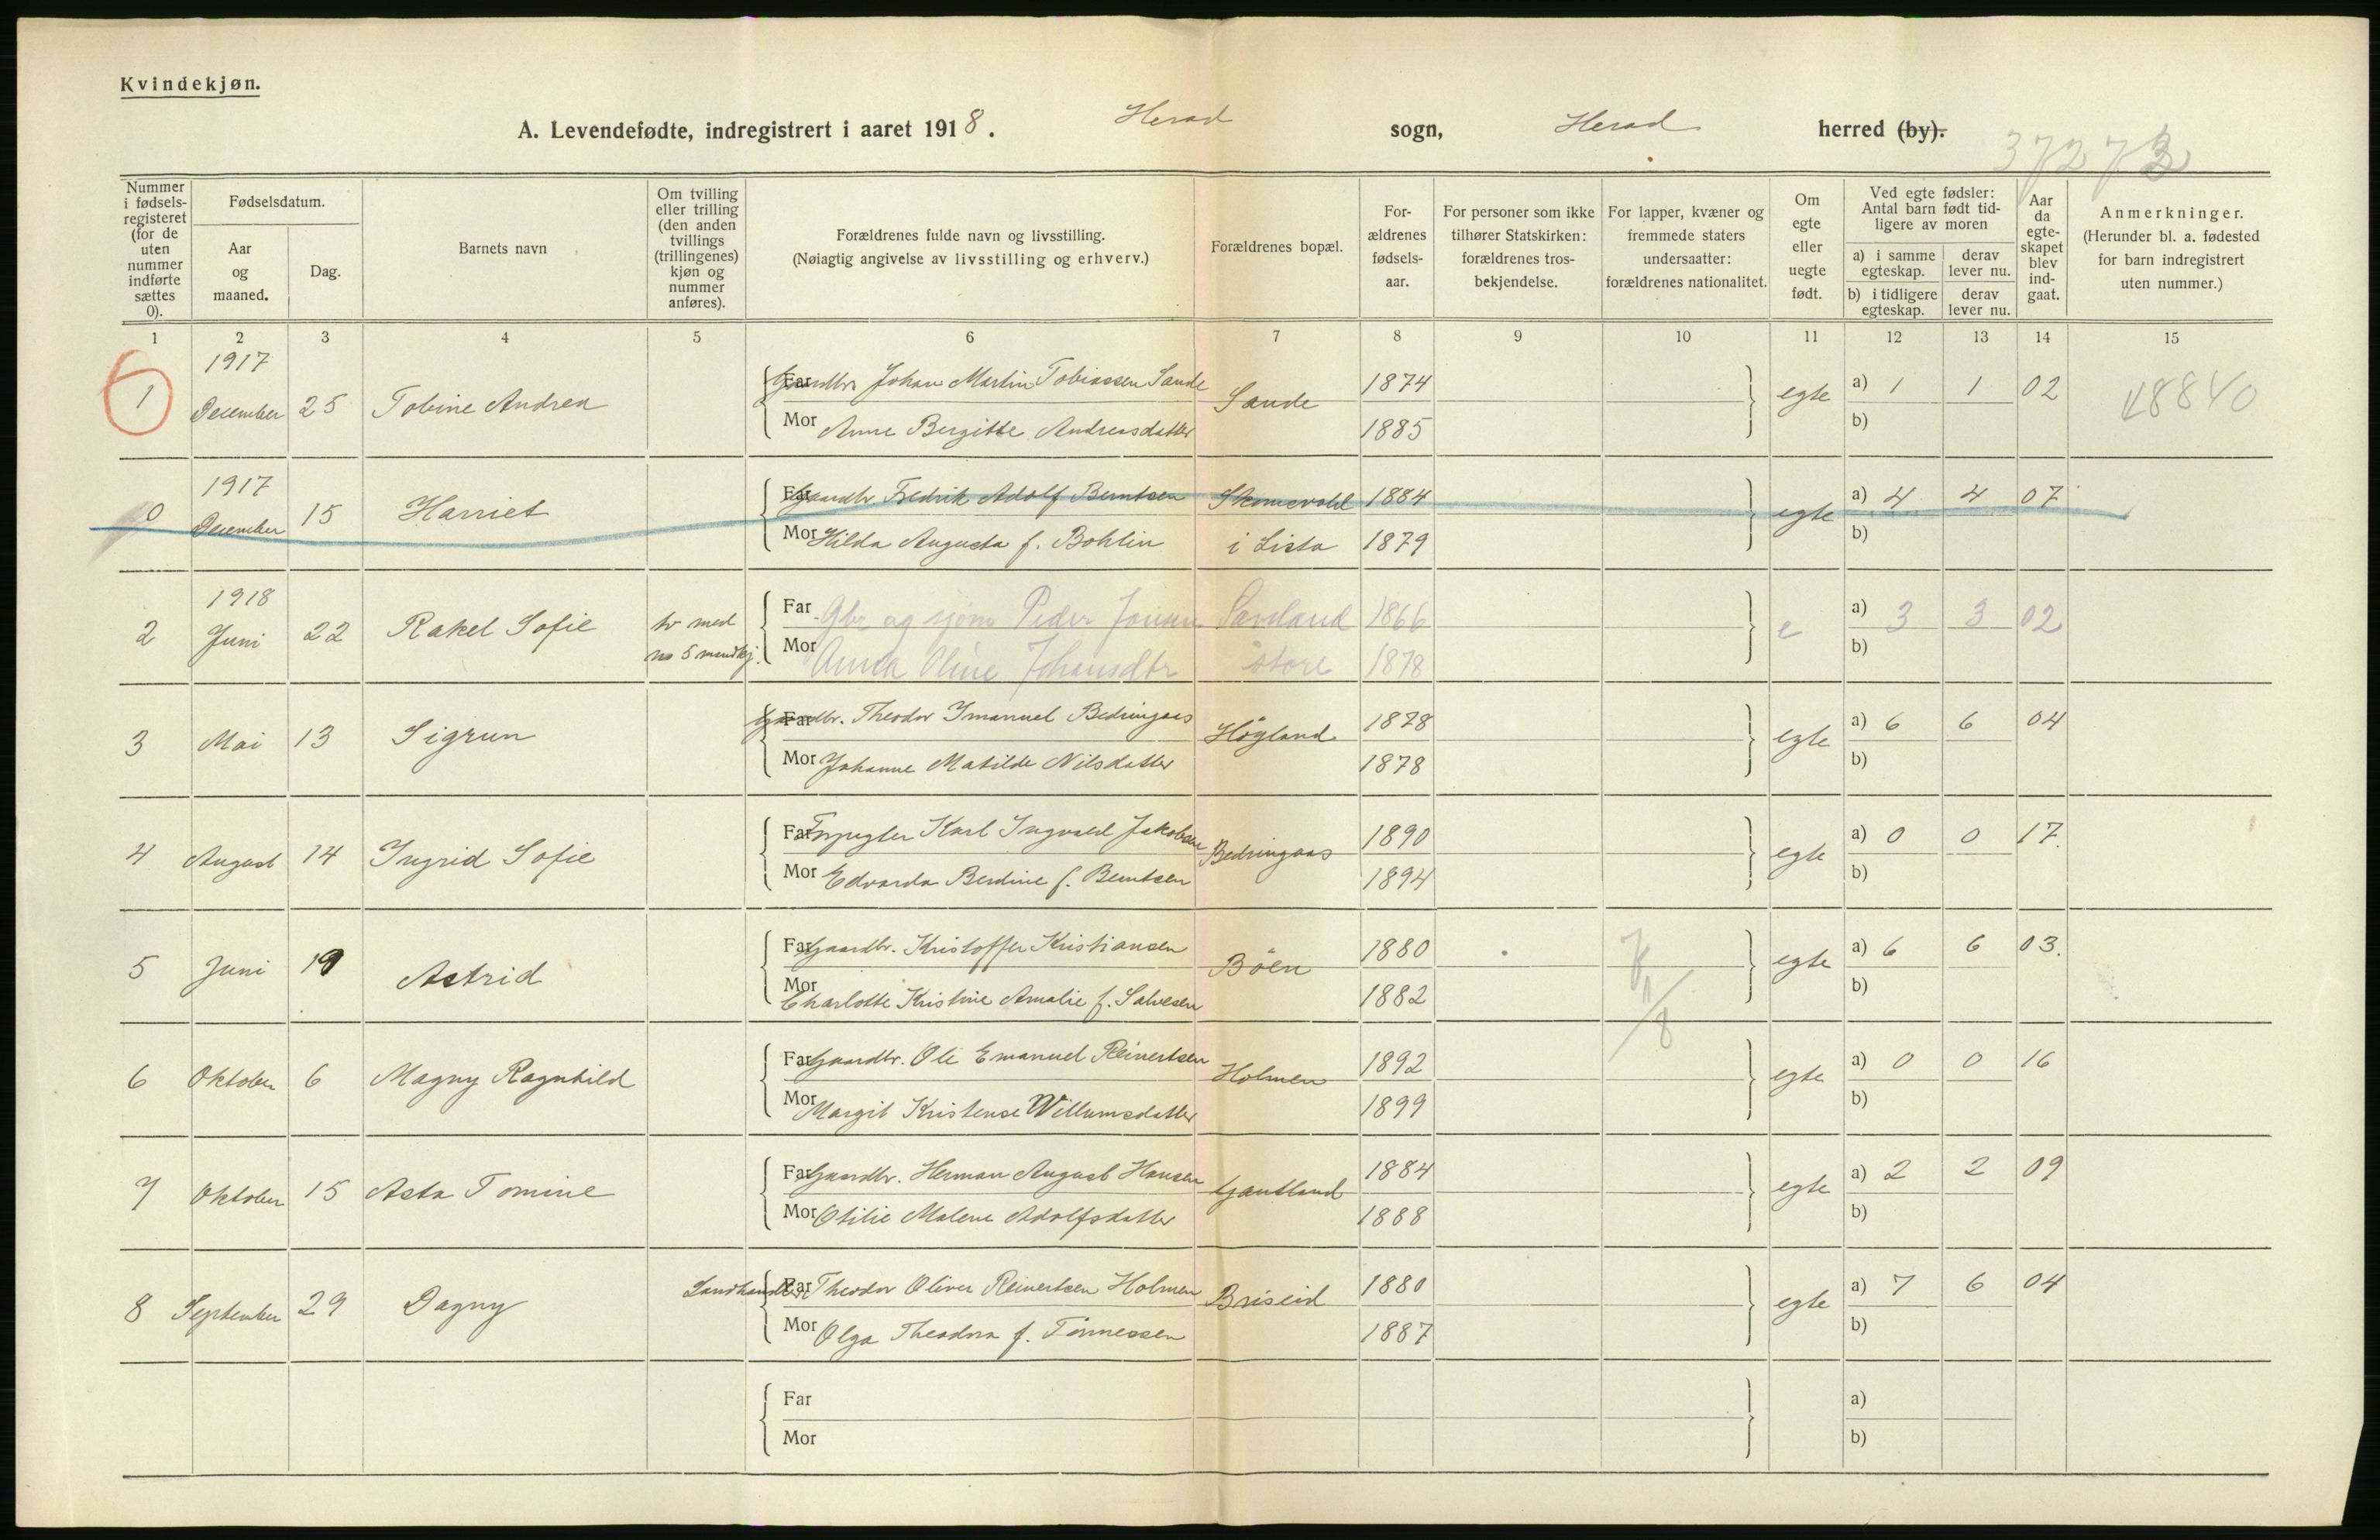 Kvindekjøn.
A. Levendefødte, indregistrert i aaret 1918. Herad sogn, Herad herred (by).
37273
Nummer i fødsels-registeret (for de uten nummer indførte sættes 0).
Fødselsdatum.
Aar og maaned.
Dag.
Barnets navn
Om tvilling eller trilling (den anden tvillings (trillingenes) kjøn og nummer anføres).
Forældrenes fulde navn og livsstilling.
(Nøiagtig angivelse av livsstilling og erhverv.)
Forældrenes bopæl.
For-ældrenes fødsels-aar.
For personer som ikke tilhører Statskirken: forældrenes tros-bekjendelse.
For lapper, kvæner og fremmede staters undersaatter: forældrenes nationalitet.
Om egte eller uegte født.
Ved egte fødsler: Antal barn født tid-ligere av moren
a) i samme egteskap.
derav lever nu.
b) i tidligere egteskap.
derav lever nu.
Aar da egte-skapet blev ind-gaat.
Anmerkninger.
(Herunder bl. a. fødested for barn indregistrert uten nummer.)
1 2 3 4 5 6 7 8 9 10 11 12 13 14 15
1917
1 December 25 Tobine Andrea
Far Gaardbr. Johan Martin Tobiassen Sande Sande 1874 egte a) 1 1 02
Mor Anne Bergitte Andreasdatter 1885 b)
48840
1917
0 December 15 Harriet
Far Gaardbr. Fredrik Adolf Berntsen Skomevold 1884 egte a) 4 4 07
Mor Hilda Augusta f. Bohlin i Lista 1879 b)
1918
2 Juni 22 Rakel Sofie tv med no 5 mandkj.
Far Gbr og sjøm Peder Jonsen Sandland 1866 e a) 3 3 02
Mor Anna Oline Johansdtr store 1878 b)
3 Mai 13 Sigrun
Far Gaardbr. Theodor Imanuel Bedringaas Högland 1878 egte a) 6 6 04
Mor Johanne Matilde Nilsdatter 1878 b)
4 August 14 Ingrid Sofie
Far Karl Ingvald Jakobsen Bedringaas 1890 egte a) 0 0 17.
Mor Edvarda Berdine f. Berntsen 1894 b)
5 Juni 19 Astrid
Far Gaardbr. Kristoffer Kristiansen Böen 1880 egte a) 6 6 03.
Mor Charlotte Kristine Amalie f. Salvesen 1882 b)
6 Oktober 6 Magny Ragnhild
Far Gaardbr. Ole Emanuel Reinertsen Holmen 1892 egte a) 0 0 16
Mor Margit Kristense Willumsdatter 1899 b)
7 Oktober 15 Asta Tomine
Far Gaardbr. Herman August Hansen Gautland 1884 egte a) 2 2 09
Mor Otilie Malene Adolfsdatter 1888 b)
8 September 29 Dagny
Far Landhandler Theodor Oliver Reinertsen Holmen Briseid 1880 egte a) 7 6 04
Mor Olga Theodora f. Tönnessen 1887 b)
Far a)
Mor b)